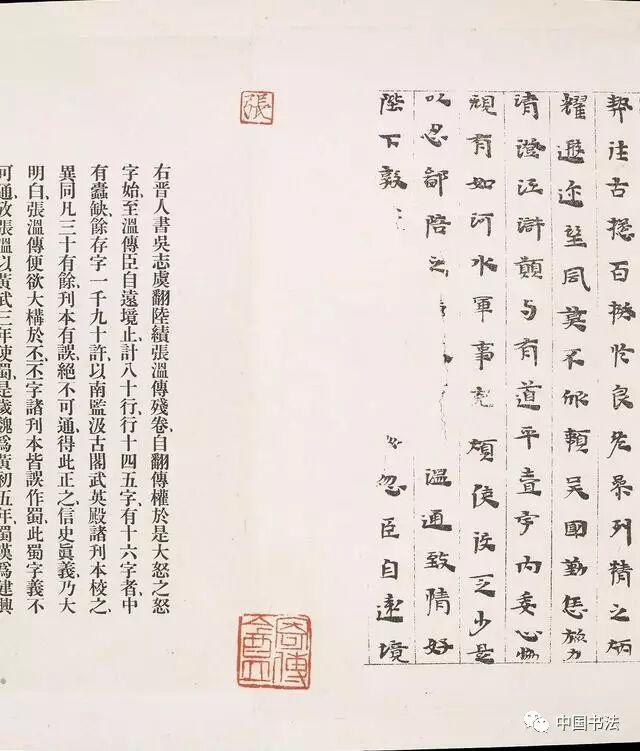 契往古揔百揆於良佐参列精之炳
耀遐迩望風莫不欣賴吳國勤恁旅力
清澄江滸願与有道平壹宇内委心協
規有如河水軍事充煩使役乏少是
以忍鄙陪之 溫通致情好
陛下敦 忽臣自遠境
張
右晉人書吳志虞翻陸績張溫傳殘卷自翻傳權於是大怒之怒
字始至溫傳臣自遠境止計八十行行十四五字有十六字者中
有蠹缺餘存字一千九十許以南監汲古閣武英殿諸刊本校之
異同凡三十有餘刊本有誤絕不可通得此正之信史眞義乃大
明白張溫傳便欲大構於丕丕字諸刊本皆誤作蜀此蜀字義不
可通攷張溫以黃武三年使蜀是歲魏爲黃初五年蜀漢爲建興
中国书法